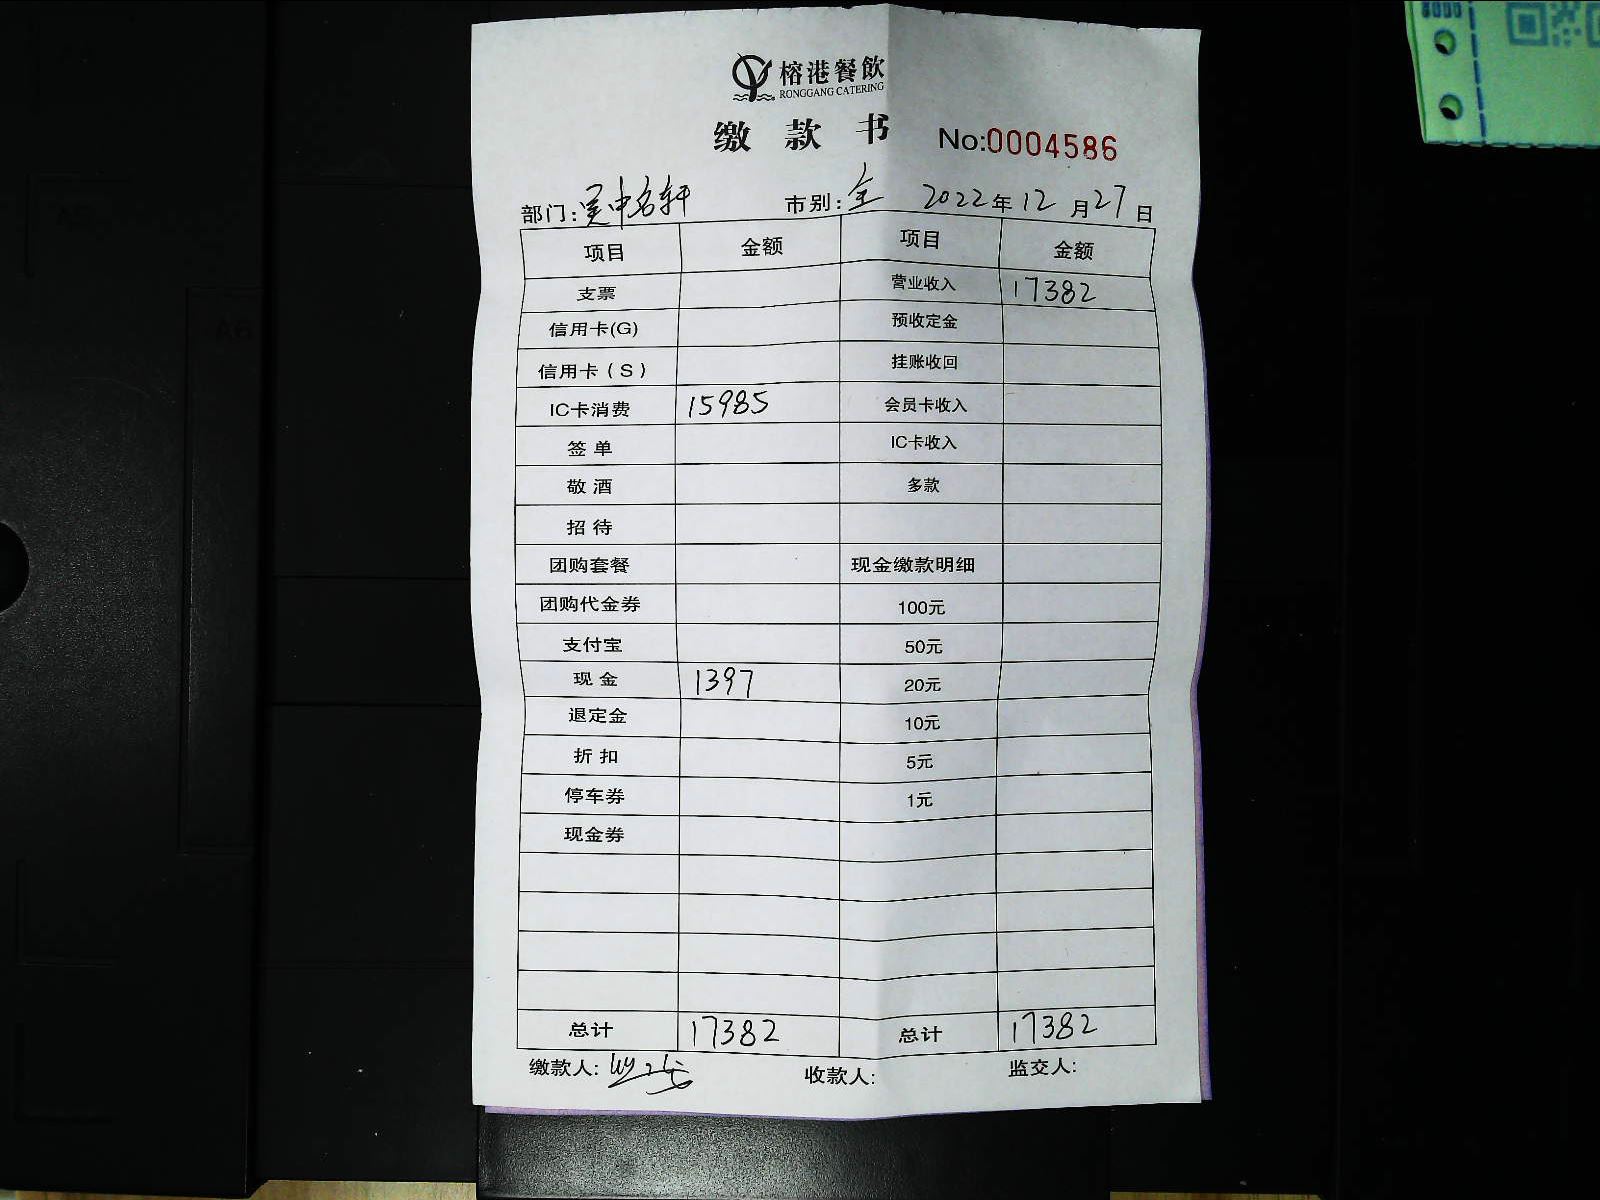 榕港餐飲
RONGGANG CATERING
缴款书 No:0004586
部门:吴中名轩 市别:全 2022年12月27日
项目 金额 项目 金额
支票 营业收入 17382
信用卡(G) 预收定金
信用卡(S) 挂账收回
IC卡消费 15985 会员卡收入
签单 IC卡收入
敬酒 多款
招待
团购套餐 现金缴款明细
团购代金券 100元
支付宝 50元
现金 1397 20元
退定金 10元
折扣 5元
停车券 1元
现金券
总计 17382 总计 17382
缴款人: 收款人: 监交人: